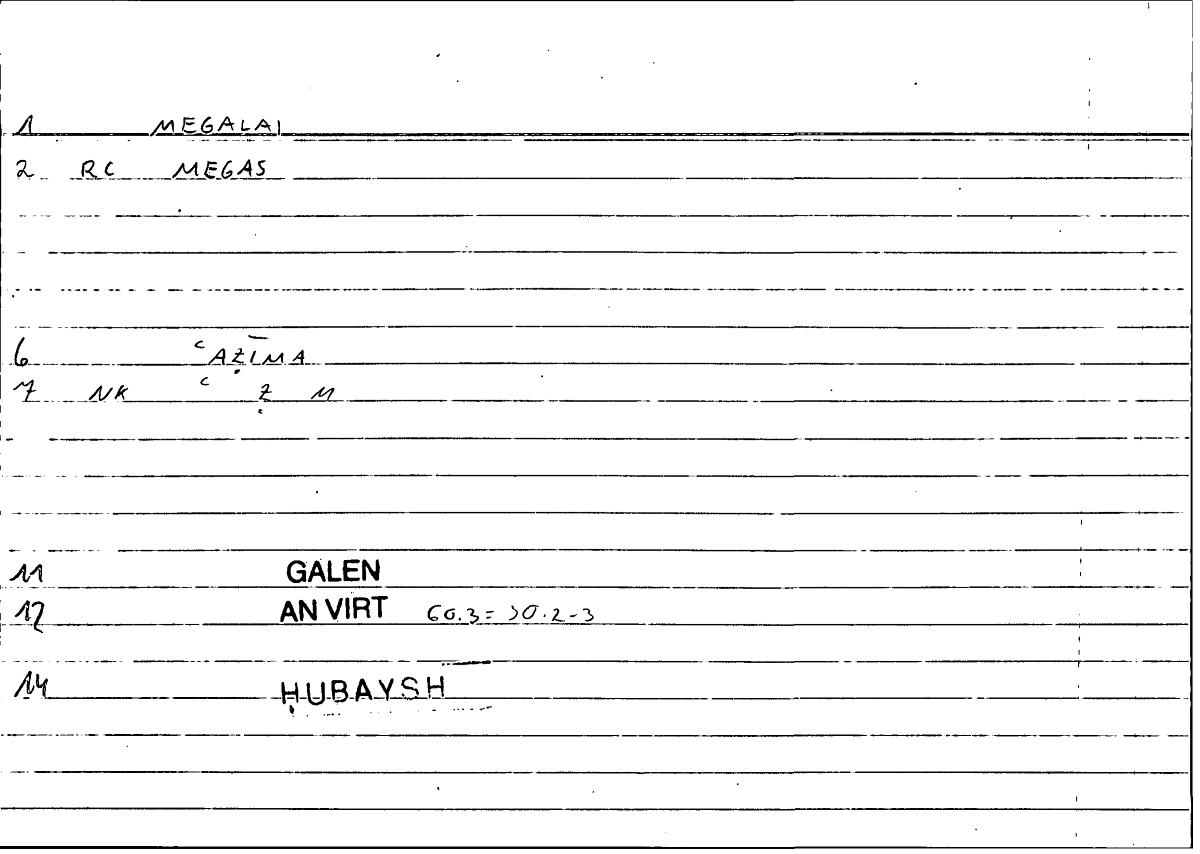 1 MEGALAI
2 RC MEGAS
6 ʿAẒĪMA
7 NK ʿ Ẓ M
11 GALEN
12 AN VIRT 60.3= 30.2-3
14 ḤUBAYSH